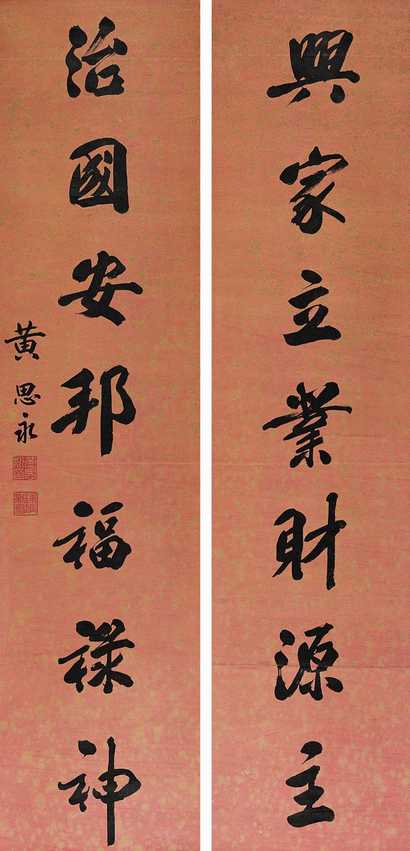 興家立業財源主
治國安邦福祿神
黄思永